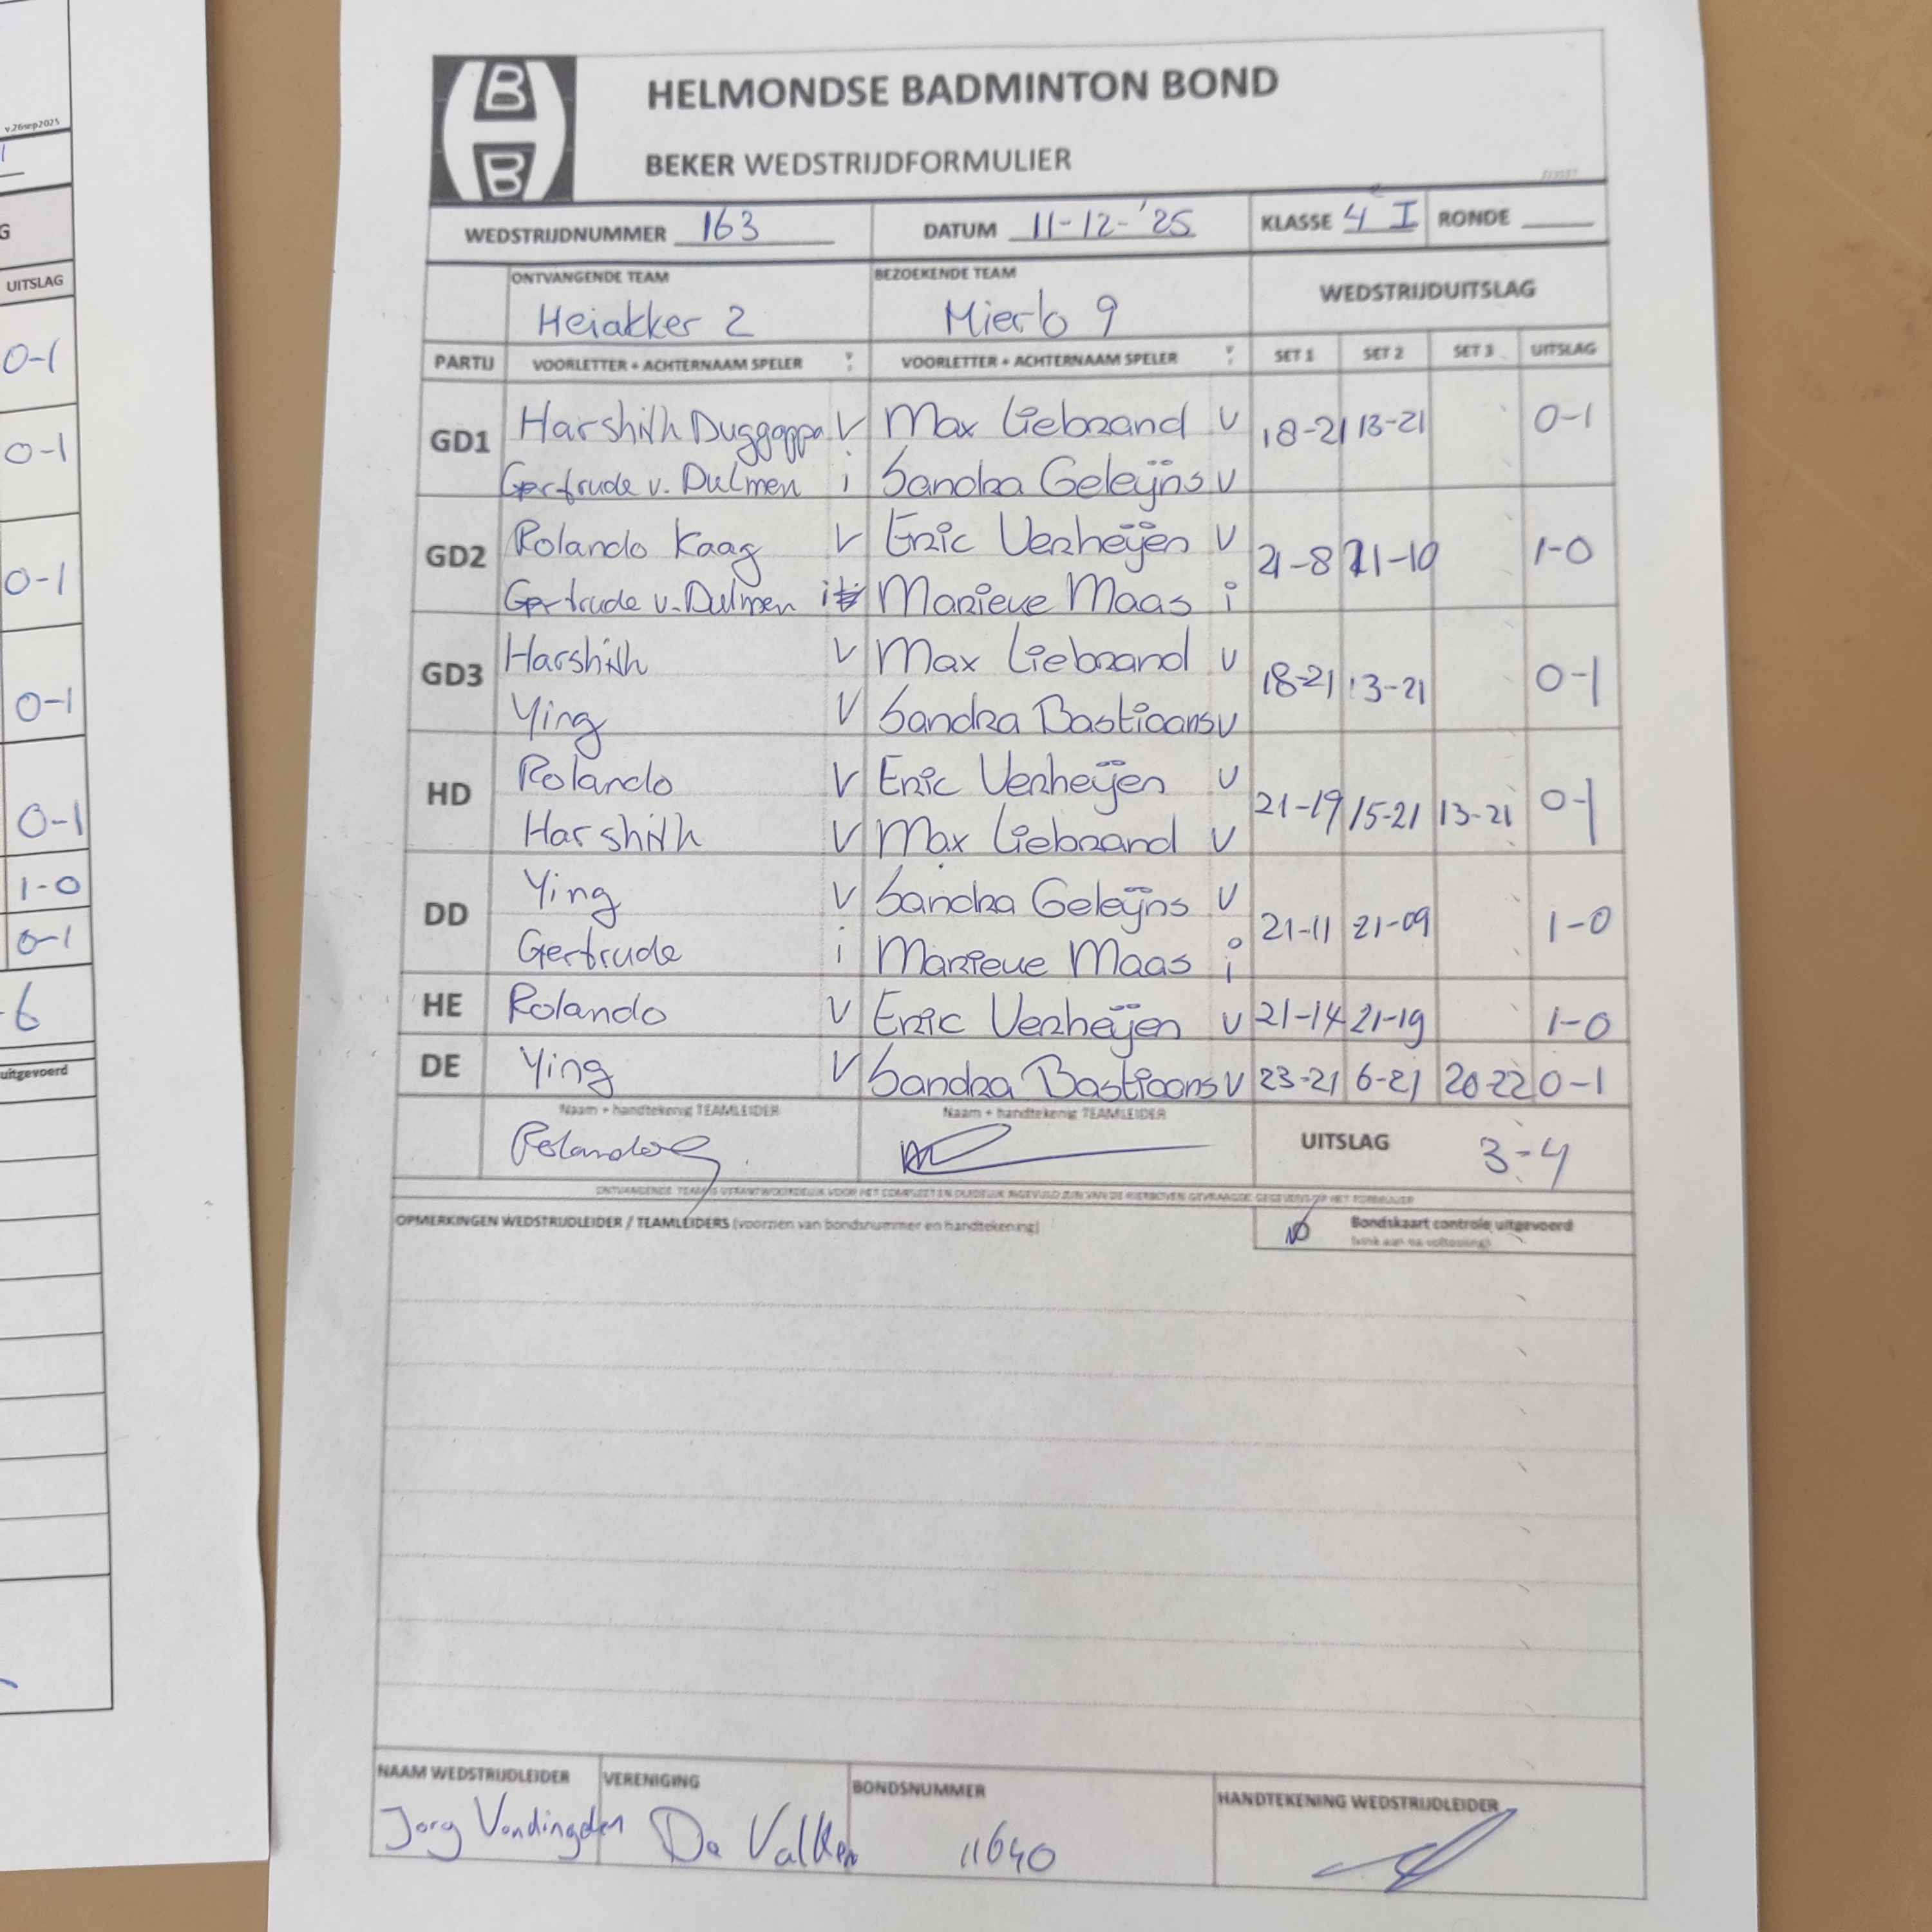 v.26sep2025
G
UITSLAG
0-1
0-1
0-1
0-1
0-1
1-0
0-1
-6
uitgevoerd
B
B
HELMONDSE BADMINTON BOND
BEKER WEDSTRIJDFORMULIER
WEDSTRIJDNUMMER 163 DATUM 11-12-'25 KLASSE 4 I RONDE
ONTVANGENDE TEAM BEZOEKENDE TEAM WEDSTRIJDUITSLAG
Heiakker 2 Mierlo 9
PARTIJ VOORLETTER + ACHTERNAAM SPELER VOORLETTER + ACHTERNAAM SPELER SET 1 SET 2 SET 3 UITSLAG
GD1 Harshith Duggappa V Max Liebrand V 18-21 13-21 0-1
Gertrude v. Dulmen i Sandra Geleijns V
GD2 Rolando Kaag V Eric Verheijen V 21-8 21-10 1-0
Gertrude v. Dulmen i Marieve Maas i
GD3 Harshith V Max Liebrand V 18-21 13-21 0-1
Ying V Sandra Bastiaans V
HD Rolando V Eric Verheijen V 21-19 15-21 13-21 0-1
Harshith V Max Liebrand V
DD Ying V Sandra Geleijns V 21-11 21-09 1-0
Gertrude i Marieve Maas i
HE Rolando V Eric Verheijen V 21-14 21-19 1-0
DE Ying V Sandra Bastiaans V 23-21 6-21 20-22 0-1
Naam + handtekenig TEAMLEIDER Naam + handtekenig TEAMLEIDER
Rolando UITSLAG 3-4
ONTVANGENDE TEAM IS VERANTWOORDELIJK VOOR HET COMPLEET EN DUIDELIJK INGEVULD ZIJN VAN DE HIERBOVEN GEVRAAGDE GEGEVENS OP HET FORMULIER
OPMERKINGEN WEDSTRIJDLEIDER / TEAMLEIDERS (voorzien van bondsnummer en handtekening) Bondskaart controle uitgevoerd
NAAM WEDSTRIJDLEIDER VERENIGING BONDSNUMMER HANDTEKENING WEDSTRIJDLEIDER
Jorg Vondingelen De Valken 11640